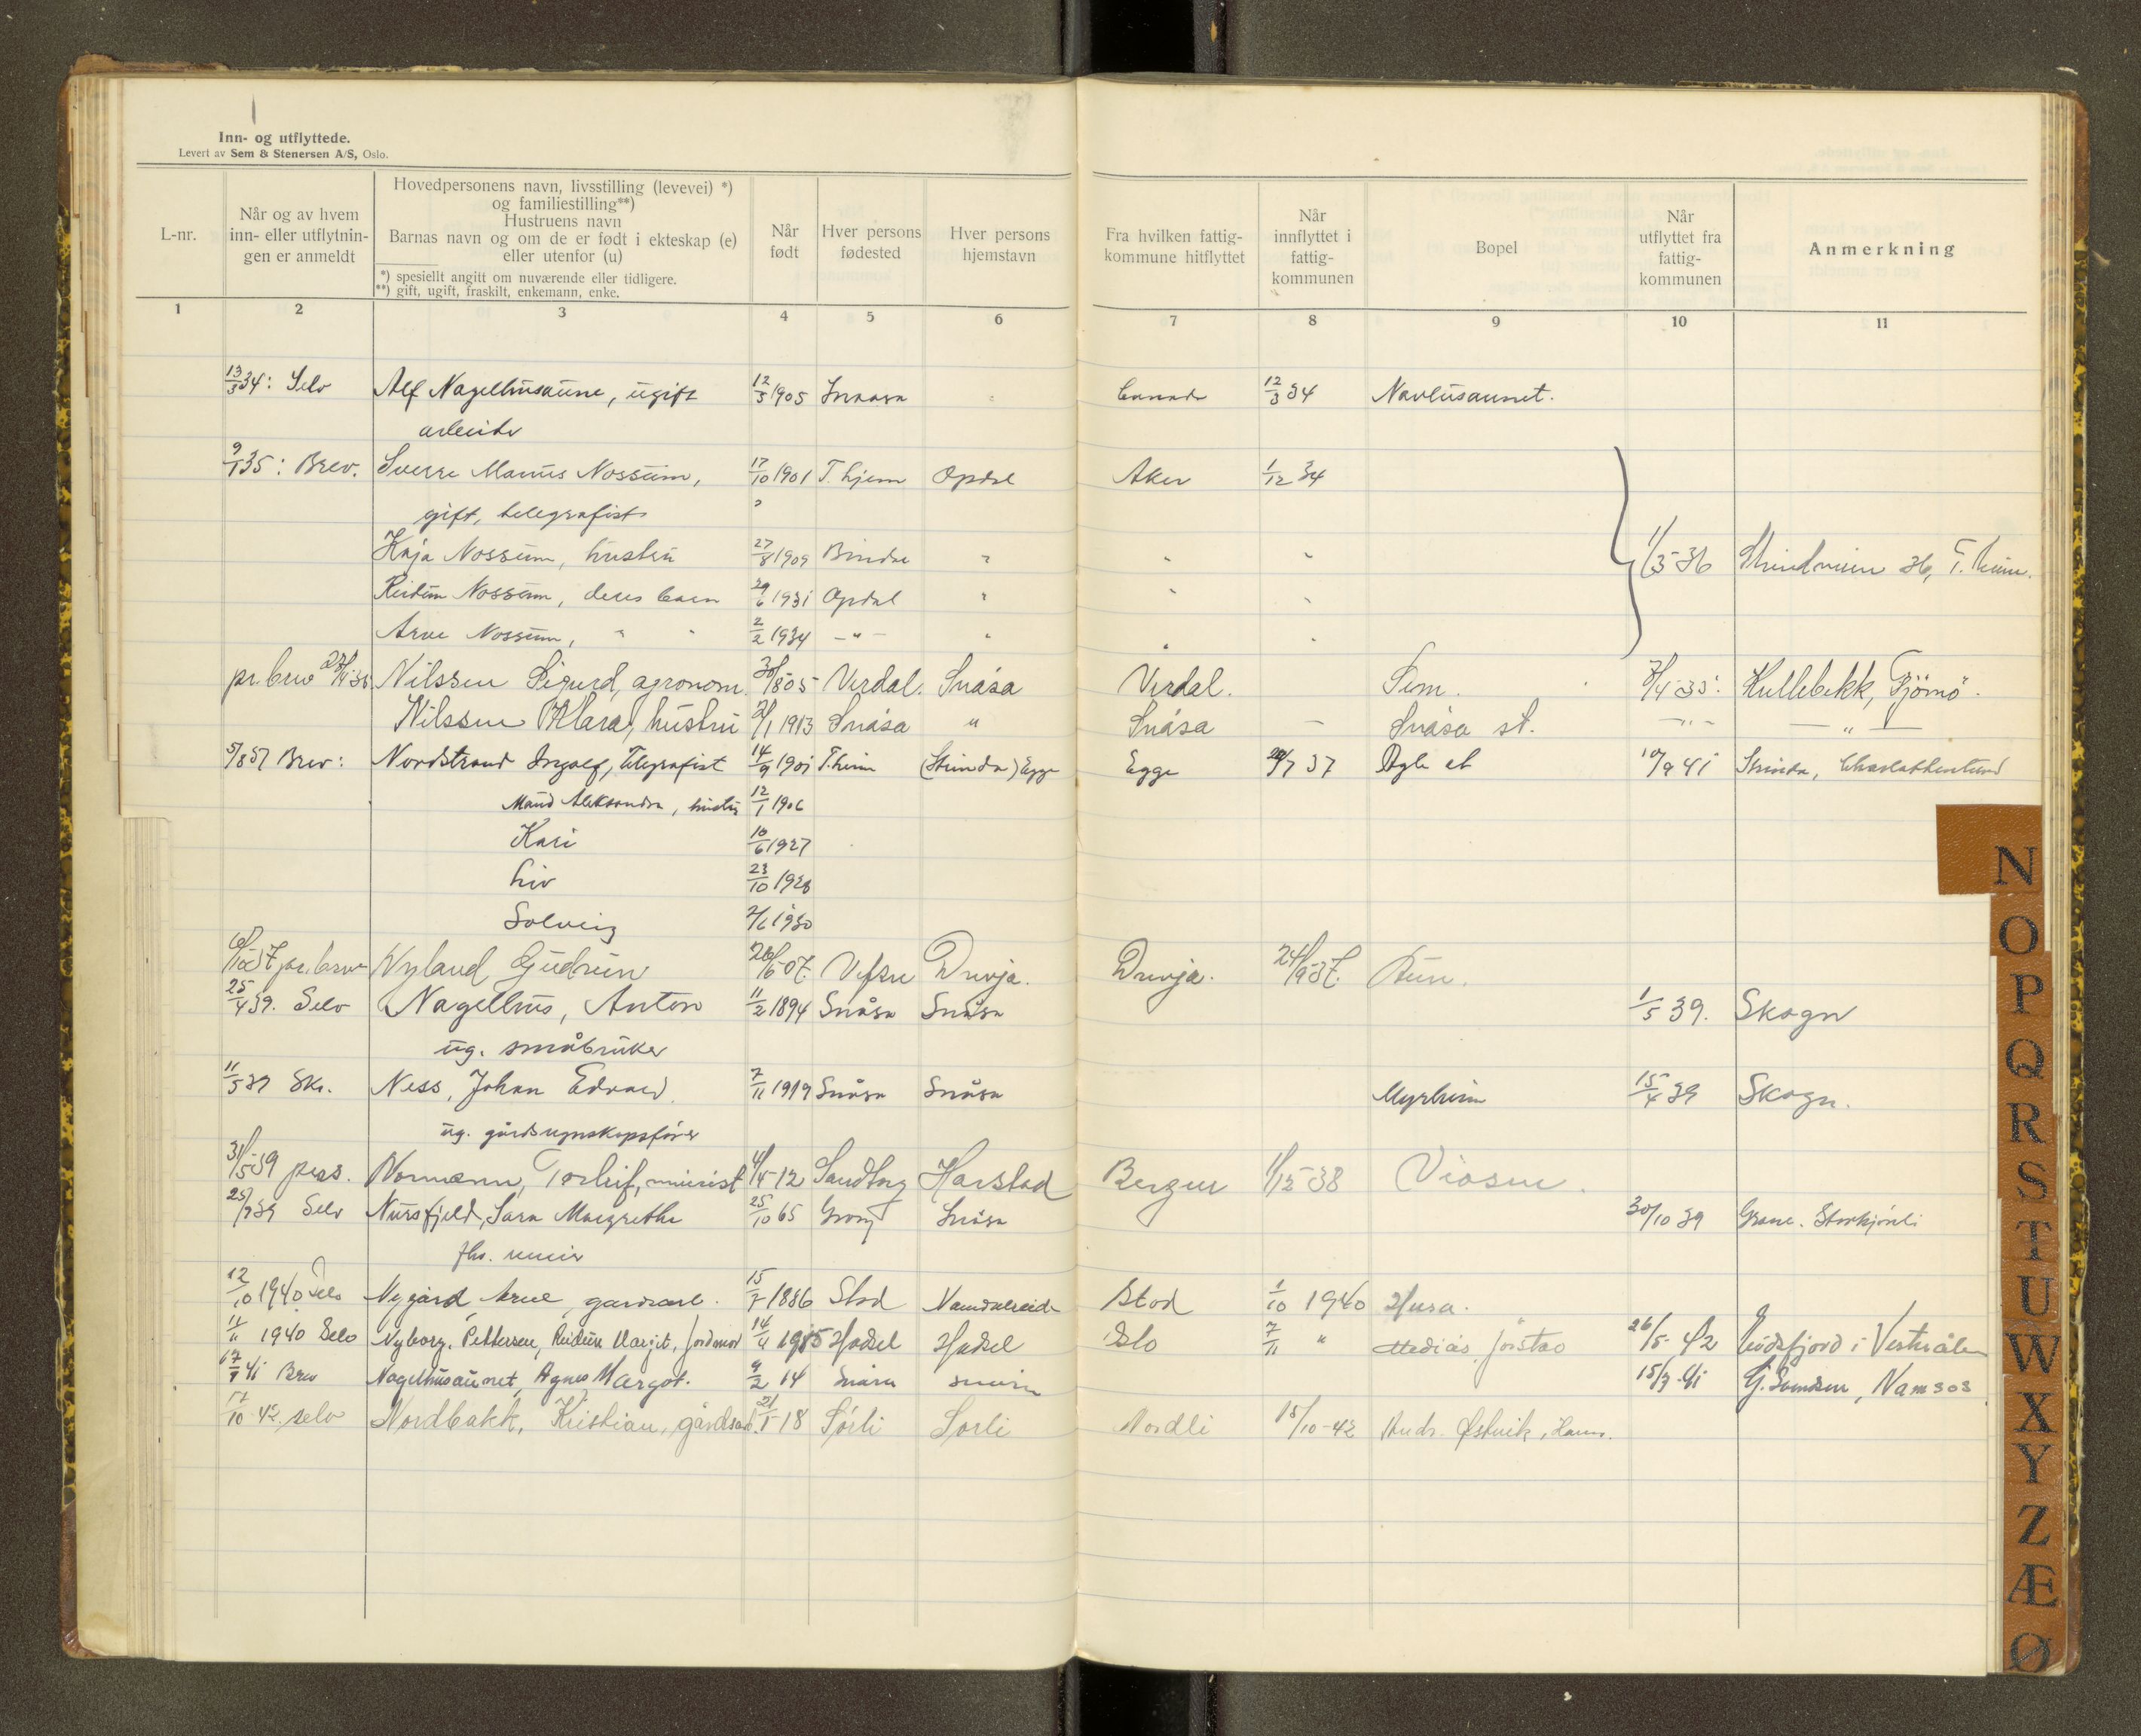 Inn- og utflyttede.
Levert av Sem & Stenersen A/S, Oslo.
L-nr.
Når og av hvem inn- eller utflytnin-gen er anmeldt
Hovedpersonens navn, livsstilling (levevei) *)
og familiestilling**)
Hustruens navn
Barnas navn og om de er født i ekteskap (e)
eller utenfor (u)
*) spesiellt angitt om nuværende eller tidligere.
**) gift, ugift, fraskilt, enkemann, enke.
Når født
Hver persons fødested
Hver persons hjemstavn
Fra hvilken fattig-kommune hitflyttet
Når innflyttet i fattig-kommunen
Bopel
Når utflyttet fra fattig-kommunen
Anmerkning
1 2 3 4 5 6 7 8 9 10 11
13/3 34: Selv Alf Nagelhusaune, ugift 12/3 1905 Snaasa Canada 12/3 34 Navlusaunet.
arbeider
9/1 35: Brev. Sverre Marius Nossum, 17/10 1901 T.hjem Opdal Aker 1/12 34
gift, telegrafist "
Kaja Nossum, hustru 27/8 1909 Bindal " " " 1/3-36 36, T.heim.
Reidun Nossum, deres barn 29/6 1931 Opdal " " "
Arve Nossum, " " 2/2 1934 -"- " " "
pr. brev Nilssen Sigurd, agronom. 30/1805 Verdal. Snåsa Verdal. Sem. 3/4-35. Kullebekk, Tjömö.
Nilssen Klara, hustru 21/1 1913 Snåsa " Snåsa - Snåsa st. -"- -"-
5/8 37 Brev: Nordstrand Ingolf, Telegrafist 14/9 1901 T.heim (Strinda) Egge Egge 37 Agle st 10/9 41 Strinda, Charlottenlund
Maud Aleksandra, hustru 12/1 1906
Kari 10/6 1927
Liv 23/10 1928
Solveig 1930
6/10-37 pr. brev Nyland Gudrun 26/6-07. Vefsn Drevja. Drevja. 24/9-37.
25/4 39. Selv Nagelhus, Anton 11/2 1894 Snåsa Snåsa 1/5 39. Skogn
ug. småbruker
11/5 39 Skr. Ness, Johan Edvard 7/11 1919 Snåsa Snåsa Myrheim 15/4 39 Skogn.
ug. gårdsregnskapsfører
31/5-39 pers. Normann, Torleif, 4/5-12 Sandtorg Harstad Bergen 1/12-38 Viosen.
25/9 39 Selv Nursfjeld, Sara Margrethe 25/10 65 Grong Snåsa 30/10 39 Grane.
12/10 1940 Selv Nygård Arne gardsarb. 15/7 1886 Stod Namdalseid Stod 1/10 1940
11/11 1940 Selv Nyborg, Pettersen, Reidun Margit, jordmor 14/4 1915 Hadsel Hadsel Oslo 7/11 " Mediås Jørstad 26/5-42 i Vesterålen
41 Brev Nagelhusaunet Agnes Margot. 9/2 14 Snåsa Snåsa 15/3-41 G. Svendsen, Namsos
17/10-42. selv Nordbakk, Kristian, gårdsarb. 21/1-18 Sørli Sørli Nordli 15/10-42 Andr. Østvik,
N
O
P
Q
R
S
T
U
W
X
Y
Z
Æ
Ø